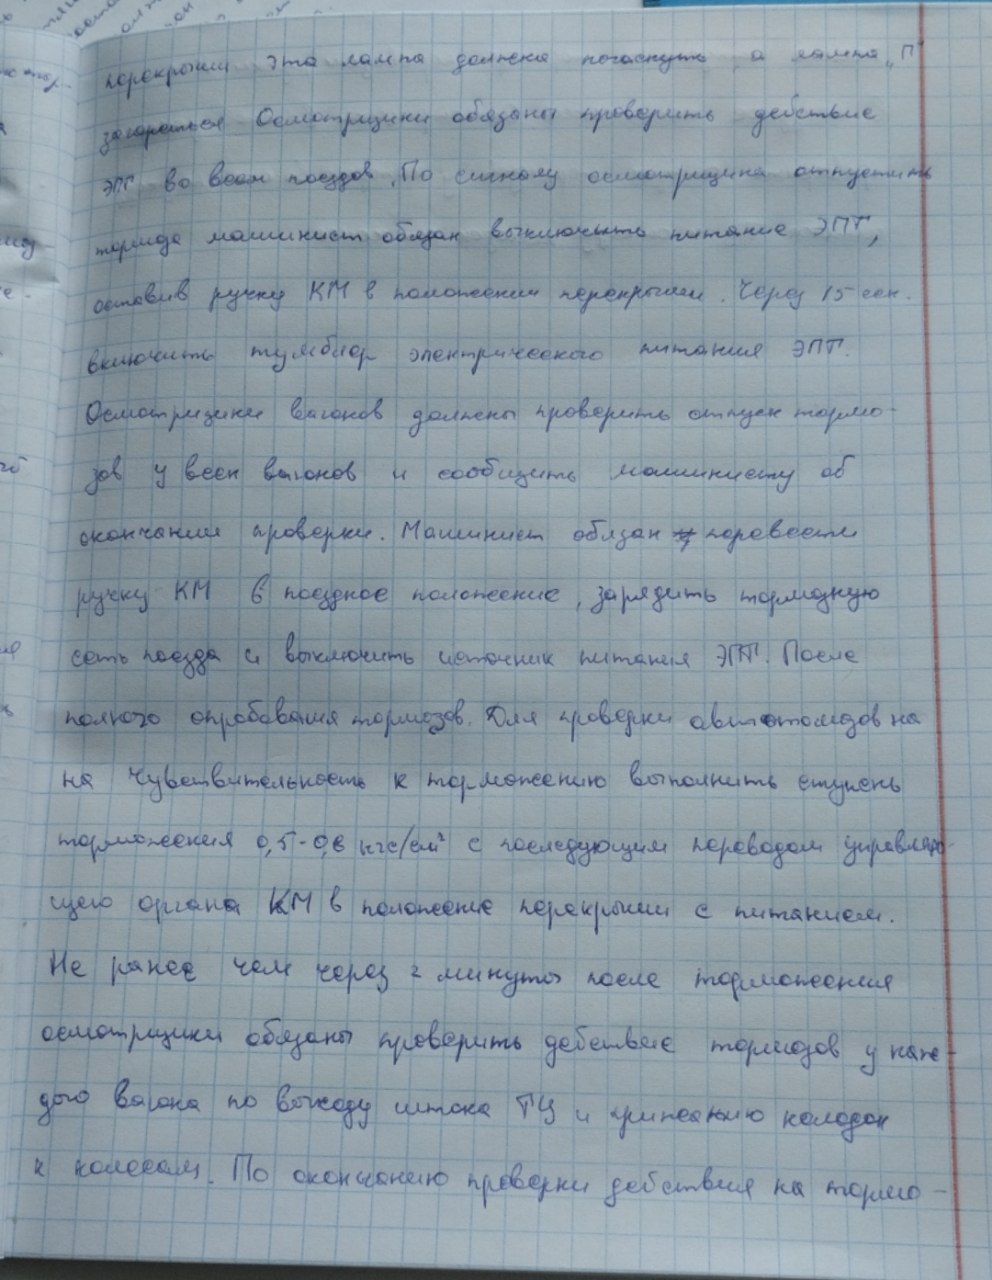 перекрыши эта лампа должна погаснуть а лампа „П"
загореться Осмотрщики обязаны проверить действие
ЭПТ во всем поездов. По сигналу осмотрщика отпустить
тормоза машинист обязан выключить питание ЭПТ,
оставив ручку КМ в положении перекрыши. Через 15 сек.
включить тумблер электрического питания ЭПТ.
Осмотрщики вагонов должны проверить отпуск тормо-
зов у всех вагонов и сообщить машинисту об
окончании проверки. Машинист обязан перевести
ручку КМ в поездное положение, зарядить тормозную
сеть поезда и выключить источник питания ЭПТ. После
полного опробования тормозов. Для проверки автотомозов на
на чувствительность к торможению выполнить ступень
торможения 0,5-0,6 кгс/см² с последующим переводом управляю-
щего органа КМ в положение перекрыши с питанием.
Не ранее чем через 2 минуты после торможения
осмотрщики обязаны проверить действие тормозов у каж-
дого вагона по выходу штока ТЦ и прижатию колодок
к колесам. По окончанию проверки действия на тормо-